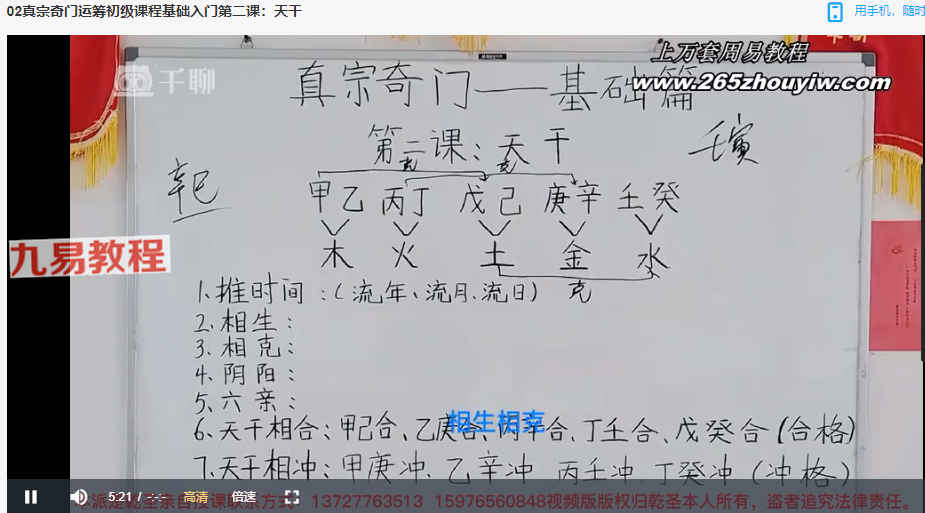 02真宗奇门运筹初级课程基础入门第二课：天干
用手机，随时
千聊
上万套周易教程
www.265zhouyiw.com
真宗奇门——基础篇
第二课：天干
壬寅
辛巳
克 克
甲乙 丙丁 戊己 庚辛 壬癸
木 火 土 金 水
九易教程
克
1、推时间：（流年、流月、流日）
2、相生：
3、相克：
4、阴阳：
5、六亲：
相生相克
6、天干相合：甲己合、乙庚合、丙辛合、丁壬合、戊癸合（合格）
7、天干相冲：甲庚冲、乙辛冲 丙壬冲、丁癸冲（冲格）
5:21 / --:-- 高清 倍速
派是乾圣亲自授课联系方式：13727763513 15976560848视频版版权归乾圣本人所有，盗者追究法律责任。